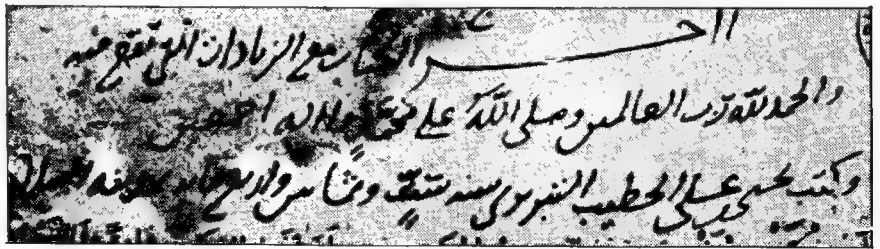 اخر الكتاب مع الزيادات التي تقع فيه
والحمد لله رب العالمين وصلى الله على محمد واله اجمعين
وكتب يحيى بن علي الخطيب التبريزي سنه ست وثمانين واربع